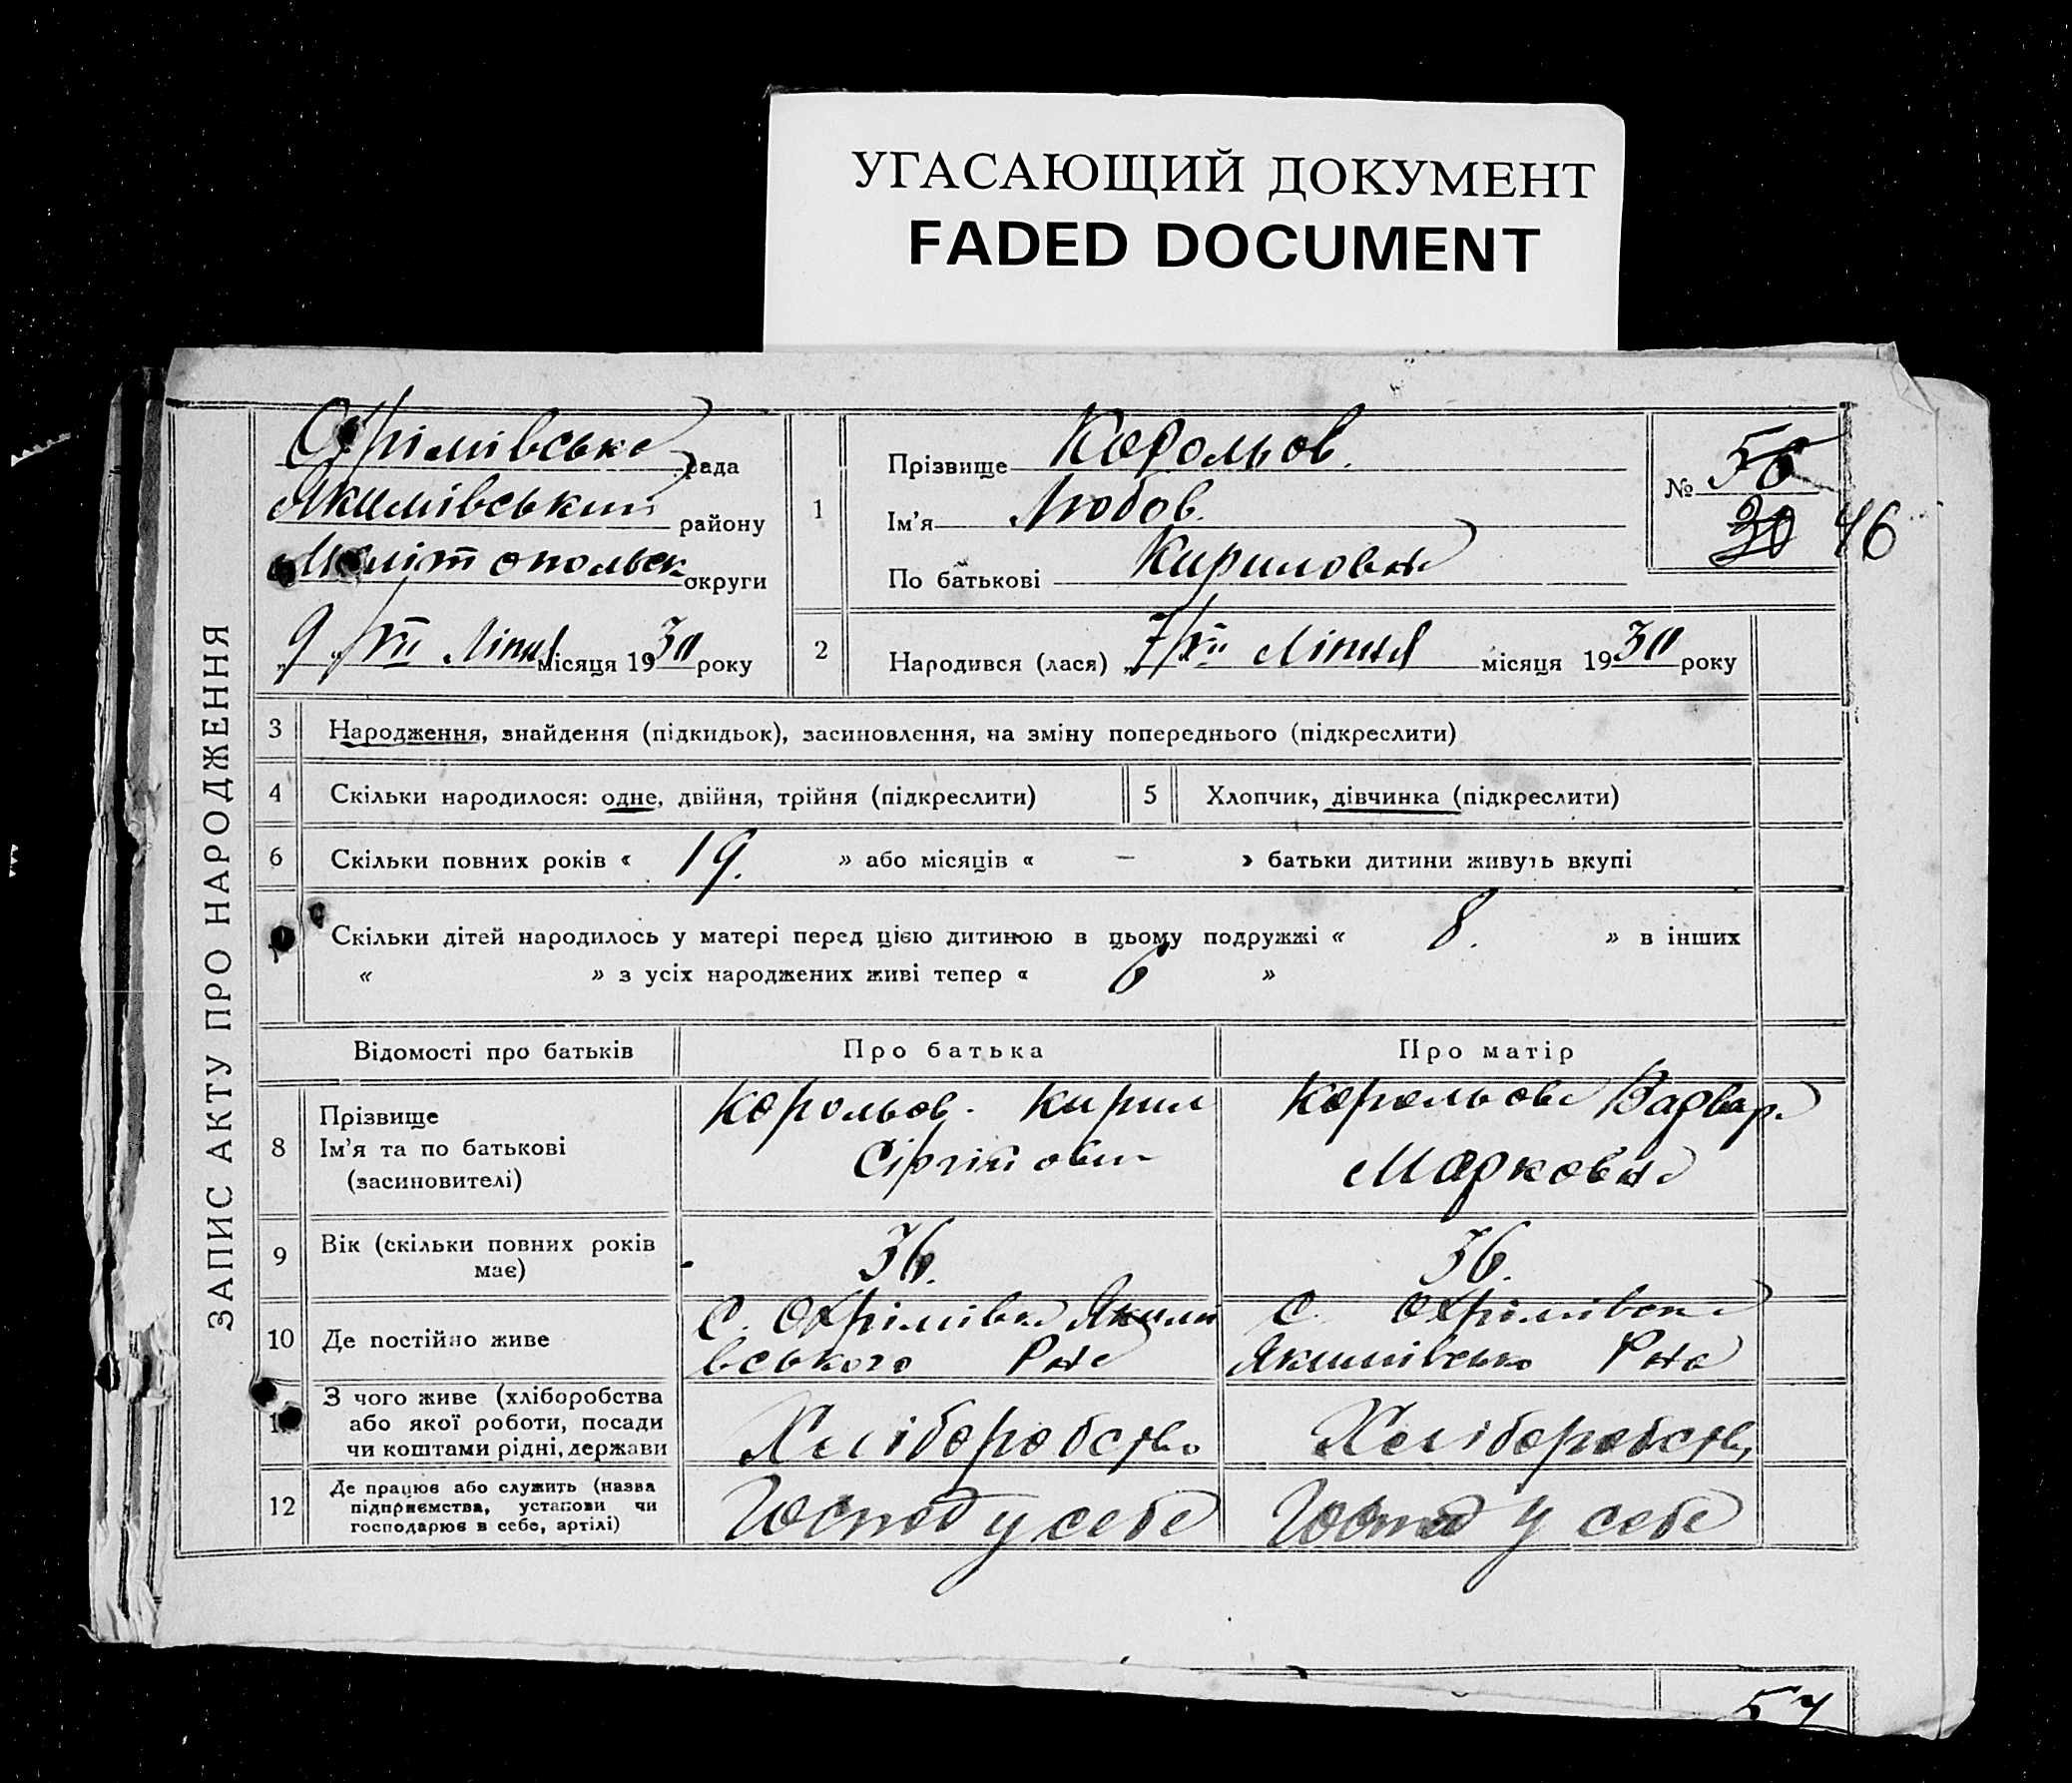 УГАСАЮЩИЙ ДОКУМЕНТ
FADED DOCUMENT
ЗАПИС АКТУ ПРО НАРОДЖЕННЯ
Охрімівська рада
Якимівський району
Мелітопольськ округи
„9“ /VII Липня місяця 1930 року
1
Прізвище Корольов.
Ім'я Любов.
По батькові Кириловна
№ 56
30 46
2 Народився (лася) „7/VII Липня місяця 1930 року
3 Народження, знайдення (підкидьок), засиновлення, на зміну попереднього (підкреслити)
4 Скільки народилося: одне, двійня, трійня (підкреслити) 5 Хлопчик, дівчинка (підкреслити)
6 Скільки повних років « 19. » або місяців « – » батьки дитини живуть вкупі
Скільки дітей народилось у матері перед цією дитиною в цьому подружжі « 8. » в інших
« » з усіх народжених живі тепер « 6 »
Відомості про батьків Про батька Про матір
8 Прізвище
Ім'я та по батькові
(засиновителі)
Корольов. Кирил
Сіргійович
Корольова Варвара
Марковна
9 Вік (скільки повних років
має)
36. 36.
10 Де постійно живе
С. Охрімівка Якимі
вського Рна
С. Охрімівка
Якимівсько Рна
З чого живе (хліборобства
або якої роботи, посади
чи коштами рідні, держави
Хліборобство Хліборобство
12 Де працює або служить (назва
підприємства, установи чи
господарює в себе, артілі)
Господ у себе Господ у себе
57